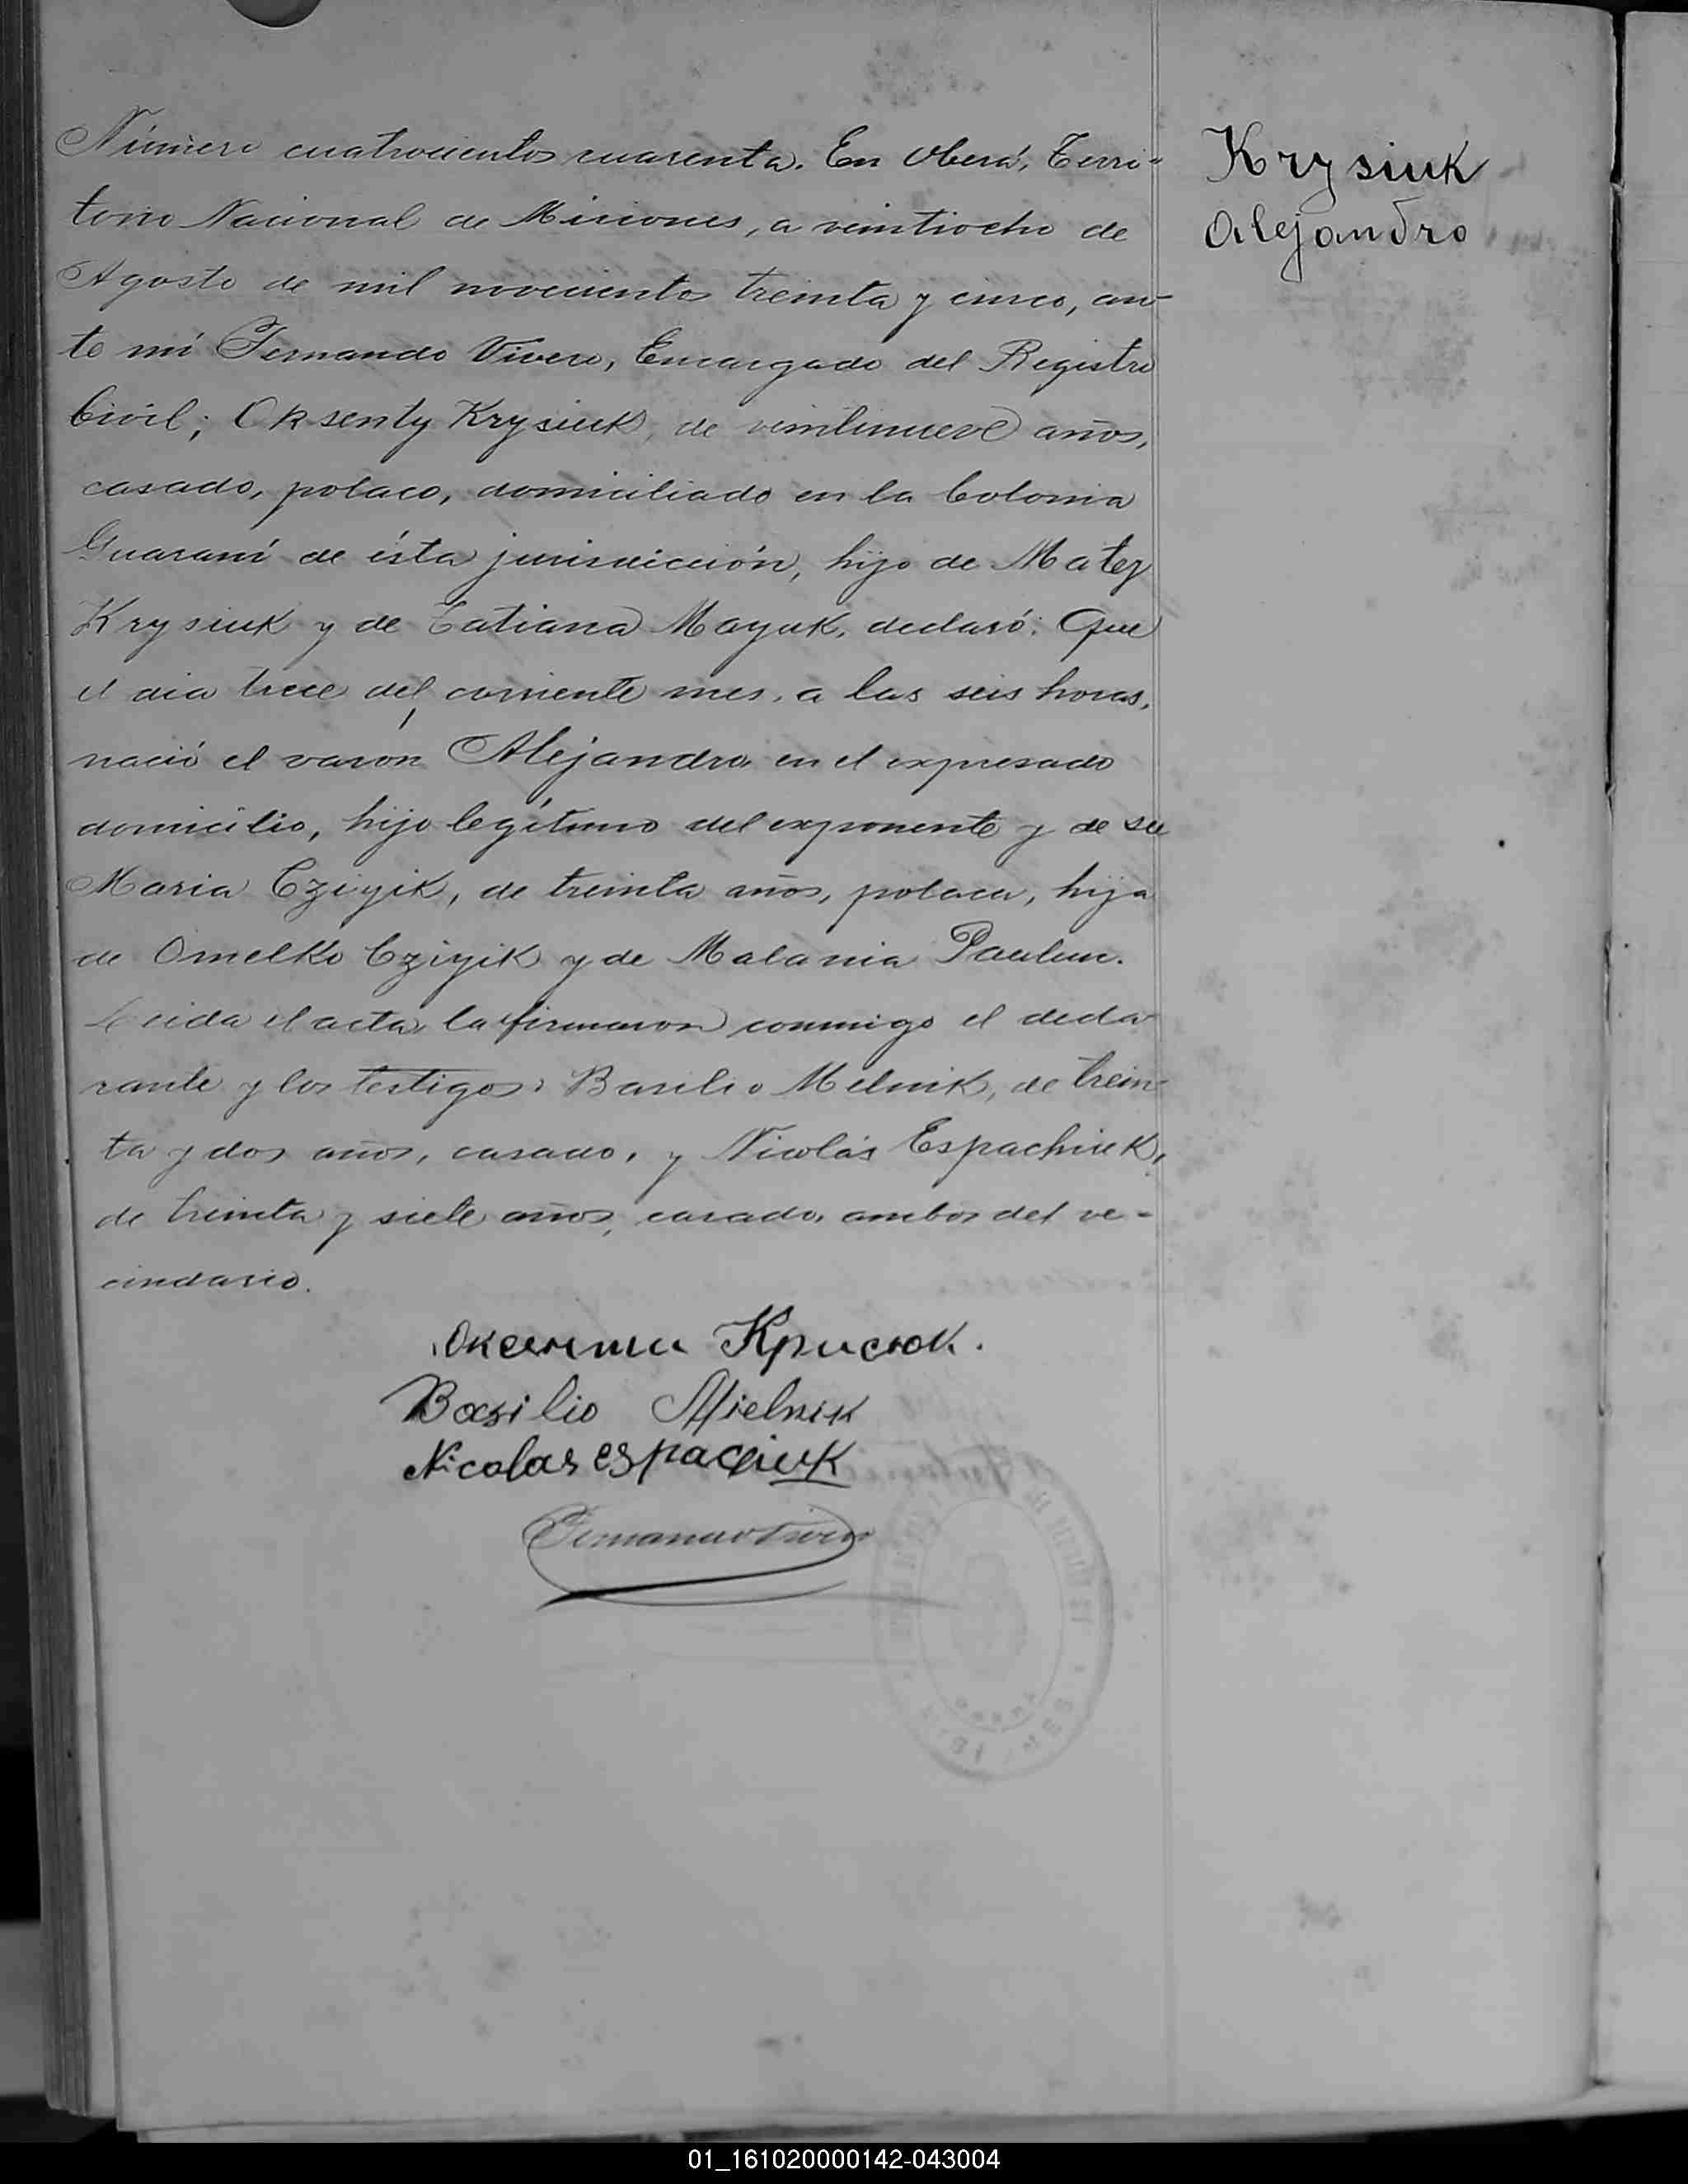 Número cuatrocientos cuarenta. En Oberá, Terri-
torio Nacional de Misiones, a veintiocho de
Agosto de mil novecientos treinta y cinco, an-
te mí Fernando Vivero, Encargado del Registro
Civil; Oksenty Krysiuk, de veintinueve años,
casado, polaco, domiciliado en la Colonia
Guaraní de ésta jurisdicción, hijo de Matey
Krysiuk y de Tatiana Mayuk, declaró: Que
el día trece del corriente mes, a las seis horas,
nació el varón Alejandro, en el expresado
domicilio, hijo legítimo del exponente y de su
Maria Cziyik, de treinta años, polaca, hija
de Omelko Cziyik y de Malania
Leida el acta, la firmaron conmigo el decla
rante y los testigos: Basilio Melnik, de trein-
ta y dos años, casado, y Nicolás Espachiuk,
de treinta y siete años, casado, ambos del ve-
cindario.
Krysiuk
Alejandro
Оксенти Крисюк.
Basilio Mielnik
Nicolas espaciuk
Fernando Vivero
01_161020000142-043004